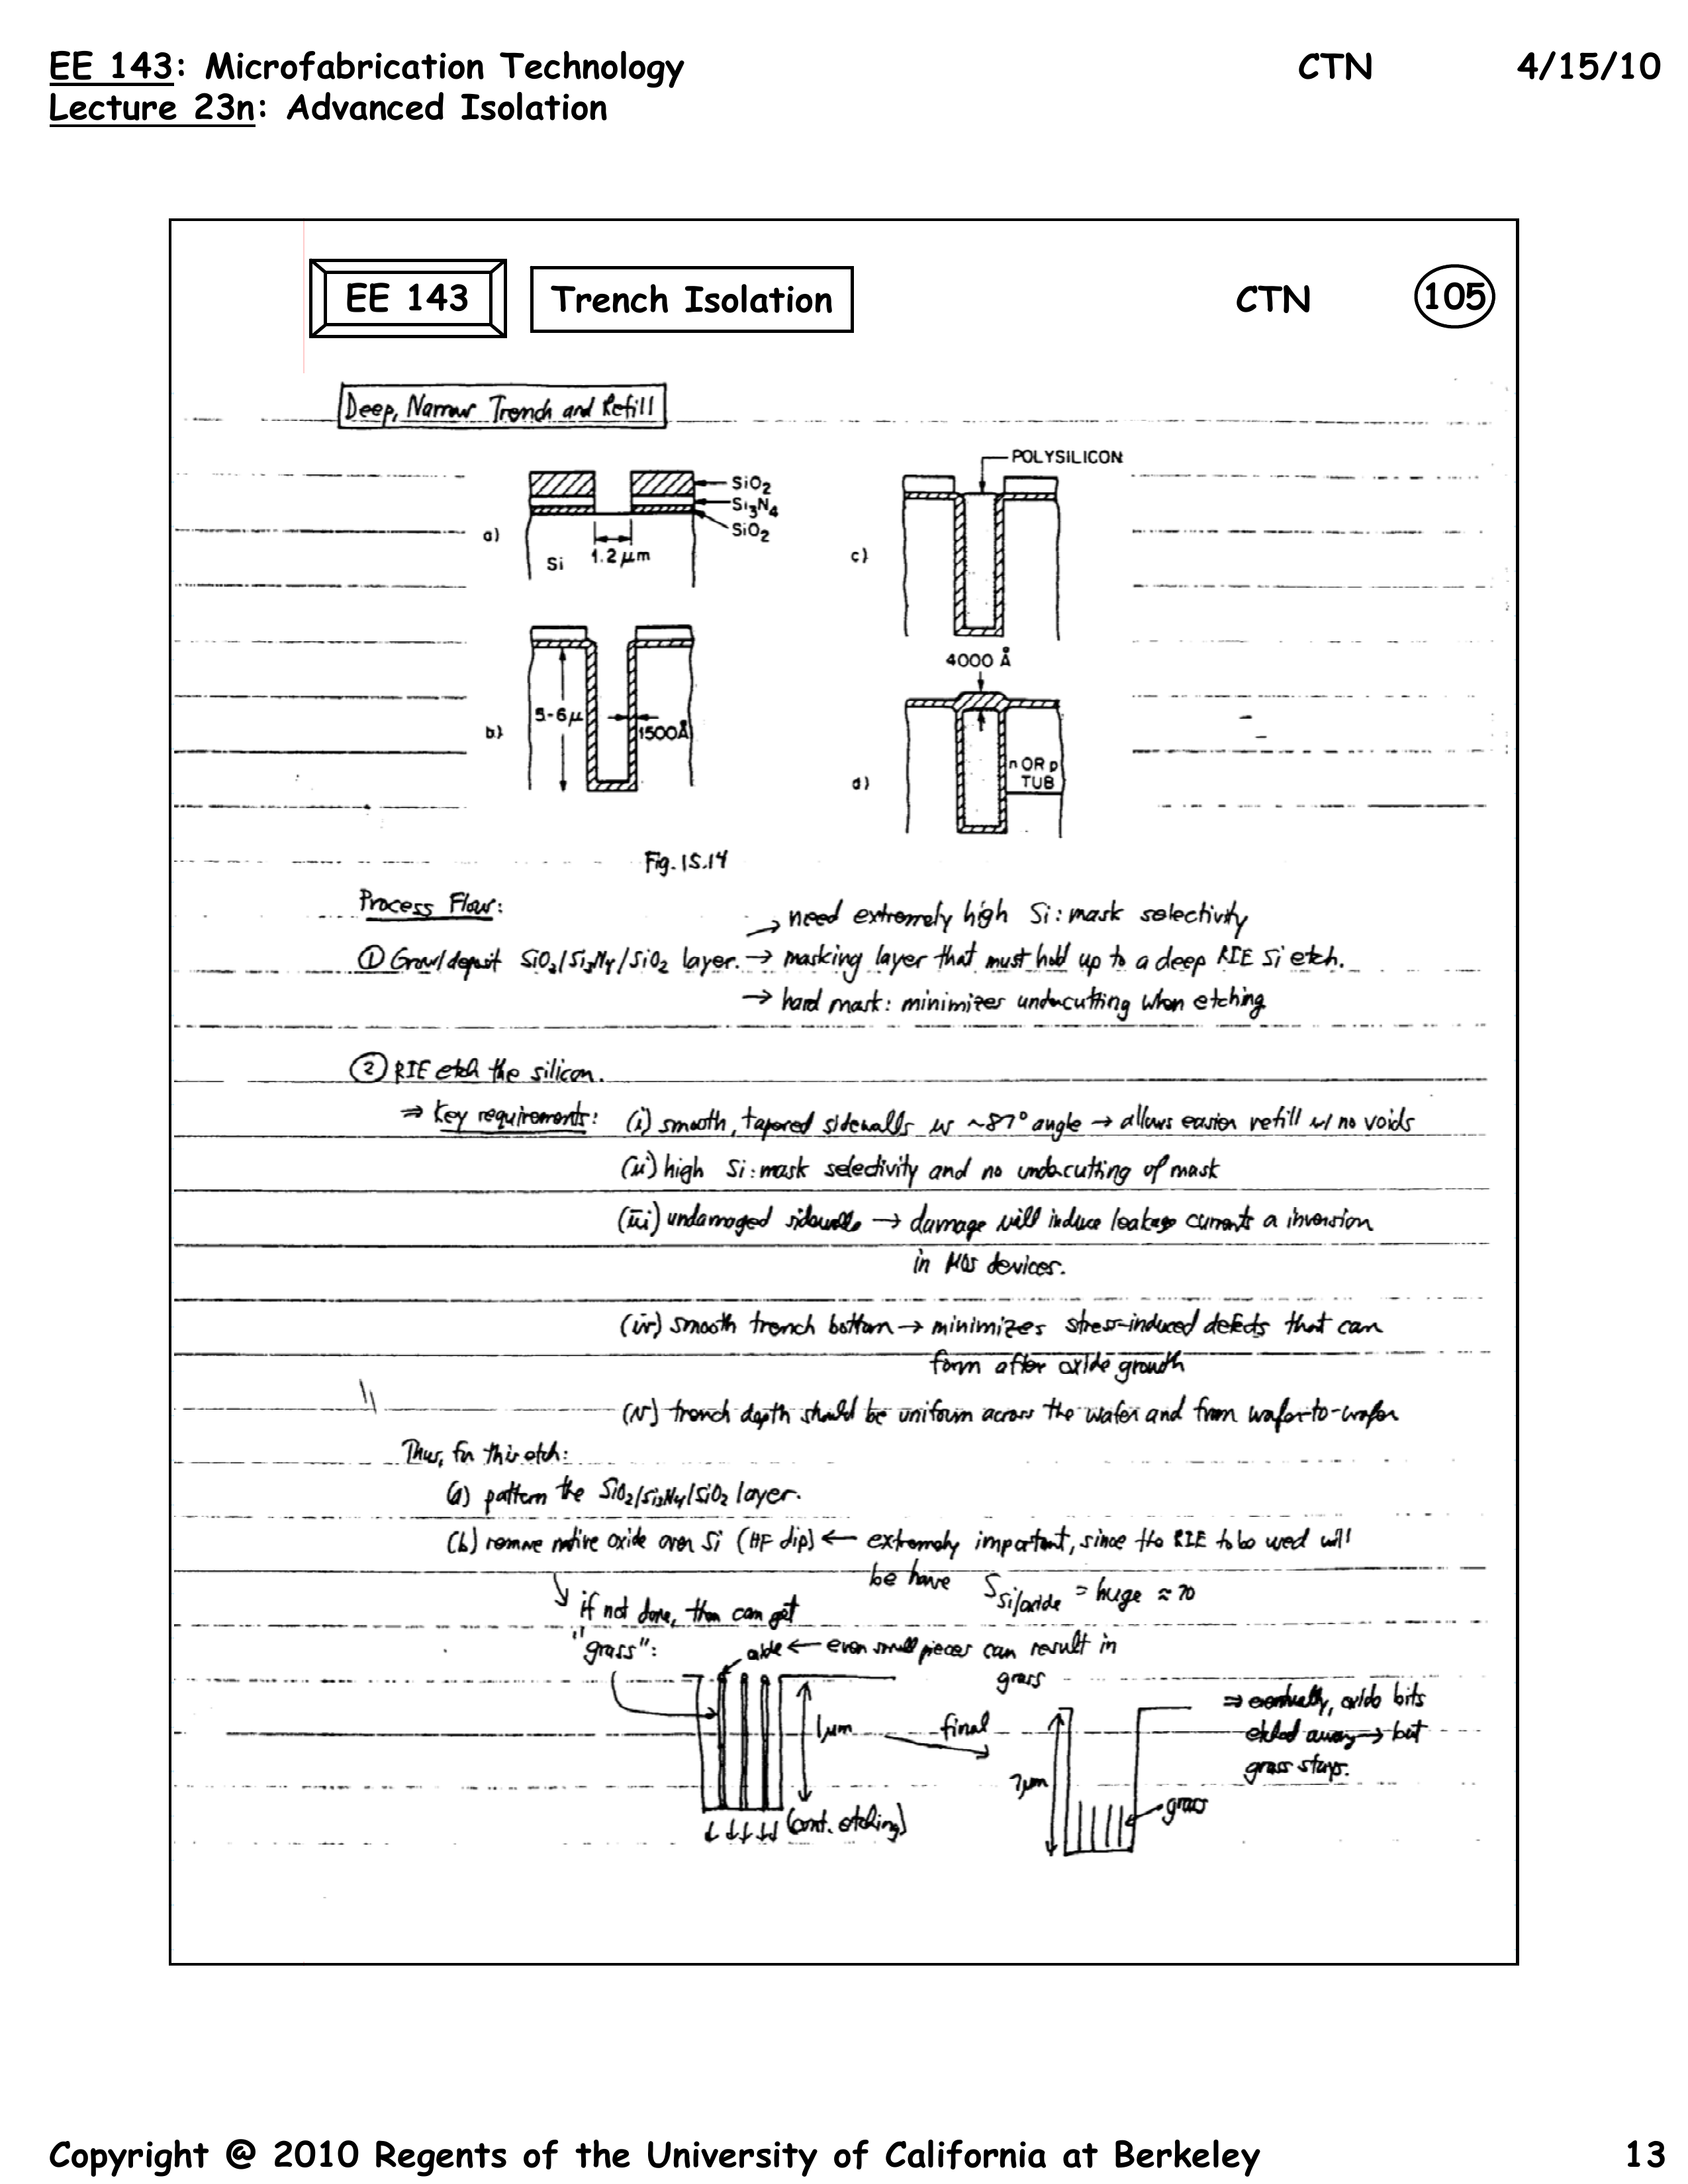 EE 143: Microfabrication Technology CTN 4/15/10
Lecture 23n: Advanced Isolation
EE 143 Trench Isolation CTN 105
Deep, Narrow Trench and Refill
POLYSILICON
SiO2
Si3N4
SiO2
a)
Si
1.2 μm
c)
4000 Å
5-6 μ
1500Å
b)
n OR p
TUB
d)
Fig. 15.14
Process Flow:
→ need extremely high Si:mask selectivity
① Grow/deposit SiO2/Si3N4/SiO2 layer. → masking layer that must hold up to a deep RIE Si etch.
→ hard mask: minimizes undercutting when etching
② RIE etch the silicon.
⇒ Key requirements: (i) smooth, tapered sidewalls w ~87° angle → allows easier refill w/ no voids
(ii) high Si:mask selectivity and no undercutting of mask
(iii) undamaged sidewalls → damage will induce leakage currents a inversion
in MOS devices.
(iv) smooth trench bottom → minimizes stress-induced defects that can
form after oxide growth
(v) trench depth should be uniform across the wafer and from wafer-to-wafer
Thus, for this etch:
(a) pattern the SiO2/Si3N4/SiO2 layer.
(b) remove native oxide over Si (HF dip) ← extremely important, since the RIE to be used will
be have S Si/oxide = huge ≈ 70
↘ if not done, then can get
"grass":
oxide ← even small pieces can result in
grass
1μm
final
(cont. etching)
7μm
grass
⇒ eventually, oxide bits
etched away → but
grass stays.
Copyright @ 2010 Regents of the University of California at Berkeley 13